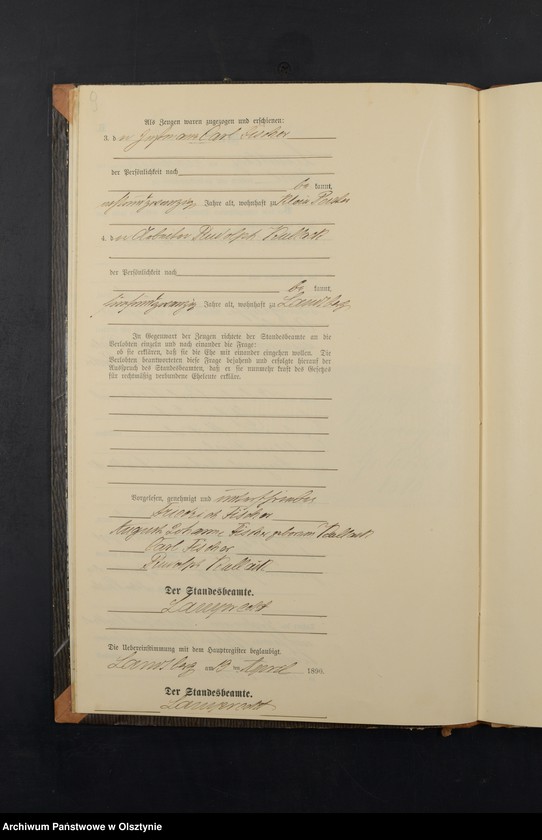 Als Zeugen waren zugezogen und erschienen:
3. der Carl Fischer
der Persönlichkeit nach
be kannt,
Jahre alt, wohnhaft zu Klein
4. der Arbeiter Rudolph Kalleik
der Persönlichkeit nach
be kannt,
fünfundzwanzig Jahre alt, wohnhaft zu Landsberg
In Gegenwart der Zeugen richtete der Standesbeamte an die
Verlobten einzeln und nach einander die Frage:
ob sie erklären, daß sie die Ehe mit einander eingehen wollen. Die
Verlobten beantworteten diese Frage bejahend und erfolgte hierauf der
Ausspruch des Standesbeamten, daß er sie nunmehr kraft des Gesetzes
für rechtmäßig verbundene Eheleute erkläre.
Vorgelesen, genehmigt und unterschrieben
Friedrich Fischer
August Johanne Fischer geborene
Carl Fischer
Rudolph Kalleik
Der Standesbeamte.
Lamprecht
Die Uebereinstimmung mit dem Hauptregister beglaubigt.
Landsberg am 13 ten April 1890.
Der Standesbeamte.
Lamprecht
Archiwum Państwowe w Olsztynie